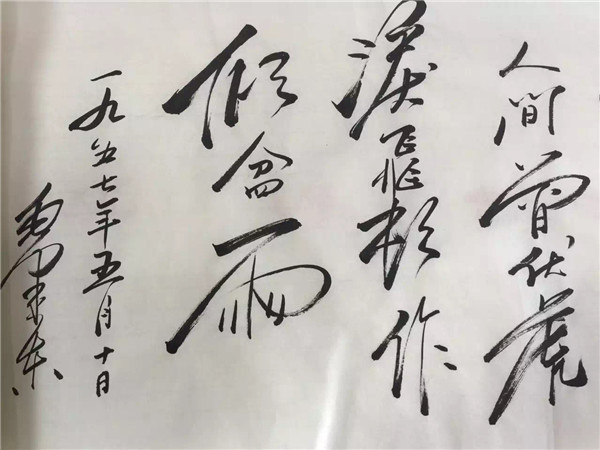 人间曾伏虎
泪飞顿作
倾盆雨
一九五七年五月十日
毛泽东